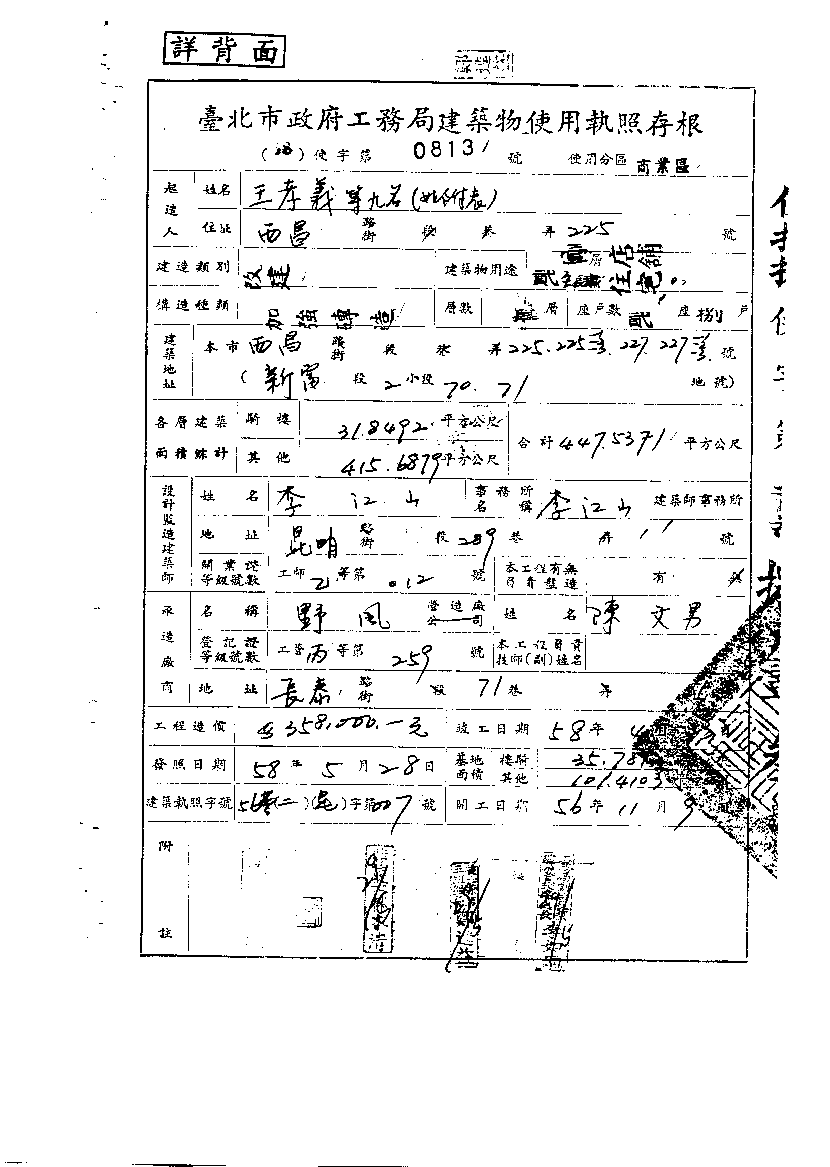 詳背面
臺北市政府工務局建築物使用執照存根
( ) 使字第 0813 號 使用分區 商業區
起造人 姓名 王孝義等九名(如附表)
住址 西昌 路街 段 巷 弄 225 號
建造類別 改建 建築物用途 店舖 住宅
構造種類 加強磚造 層數 層 座戶數 貳 座 捌 戶
建築地址 本市 西昌 路街 段 巷 弄 225.225-1.227.227-1 號
(新富 段 2 小段 70.71 地號)
各層建築面積總計 騎樓 31.8492 平方公尺 合計 447.5371 平方公尺
其他 415.6879 平方公尺
設計監造建築師 姓名 李江山 事務所名稱 李江山 建築師事務所
地址 昆明 路街 段 289 巷 弄 11 號
開業證等級號數 工師 乙 等第 012 號 本工程有無負責監造 有 無
承造廠商 名稱 野風 營造廠公司 姓名 陳文男
登記證等級號數 工營 丙 等第 259 號 本工程負責技師(副)姓名
地址 長泰 路街 段 71 巷 弄
工程造價 358,000.-元 竣工日期 58 年 4 月
發照日期 58 年 5 月 28 日 基地面積 樓騎 35.78
其他 101.4103
建築執照字號 字第 007 號 開工日期 56 年 11 月 9
附註